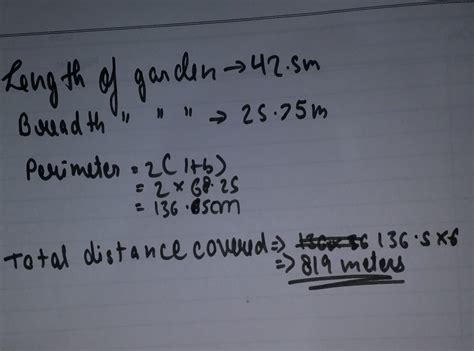 Length of garden → 42.5m
Breadth " " " → 25.75m
Perimeter = 2(l+b)
= 2 × 68.25
= 136.5cm
Total distance covered ⇒ 136.5×6
⇒ 819 meters